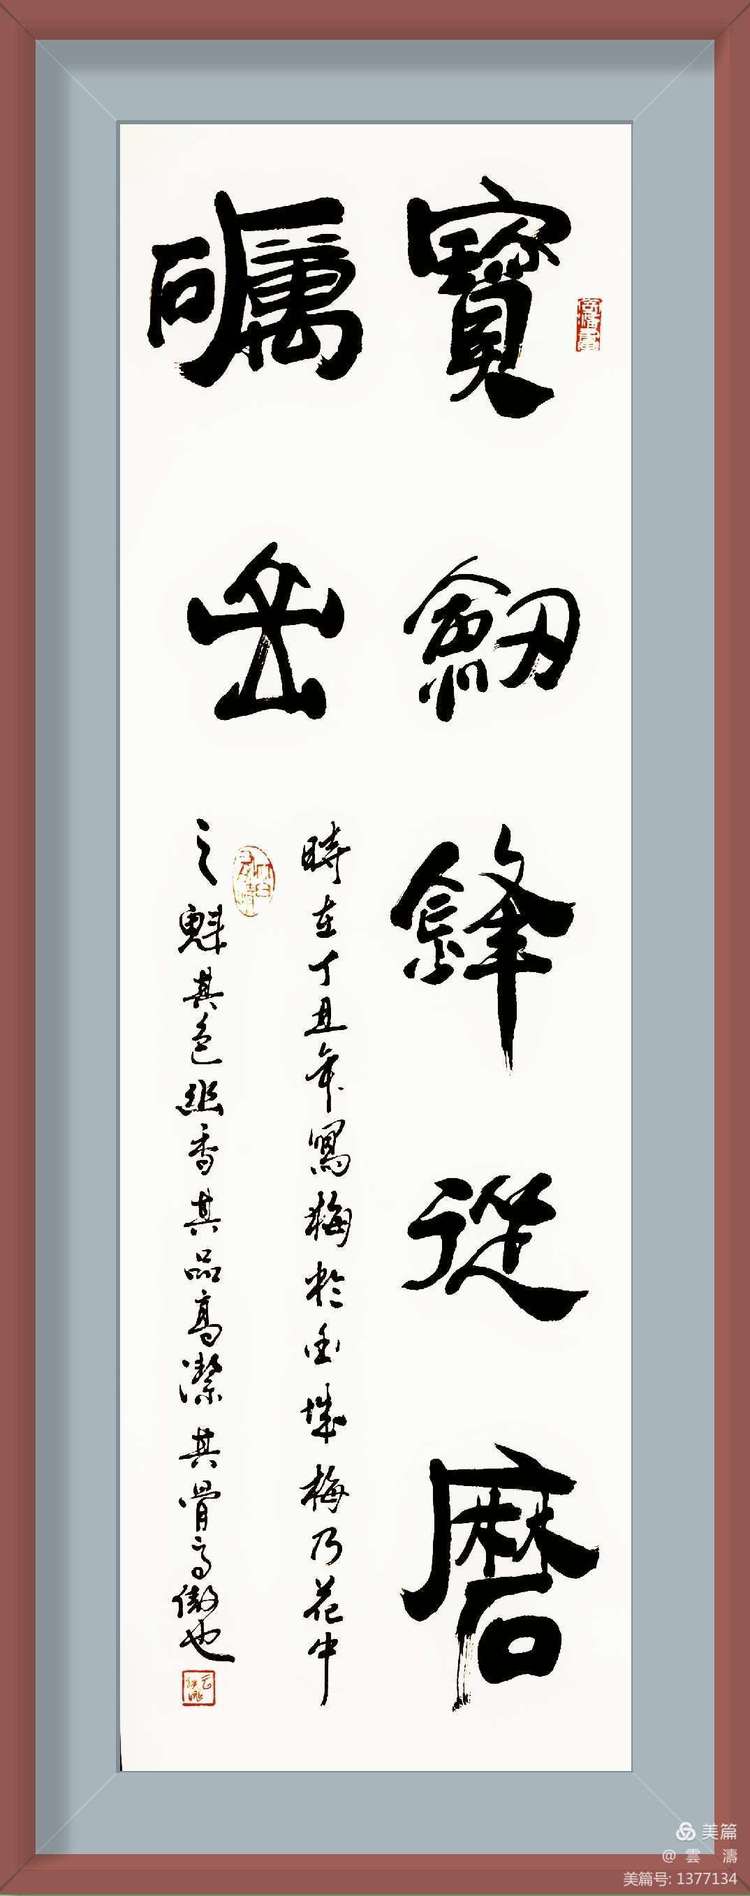 寶劒鋒從磨
礪出
時在丁丑年寫梅於城梅乃花中
之魁其色幽香其品高潔其骨高傲也
美篇
@ 雲 濤
美篇号: 1377134